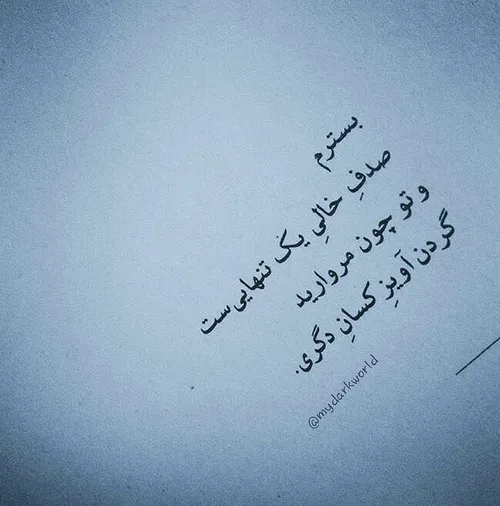 بسترم
صدفِ خالیِ یک تنهایی‌ست
و تو چون مروارید
گردن‌آویزِ کسانِ دگری.
@mydarkworld